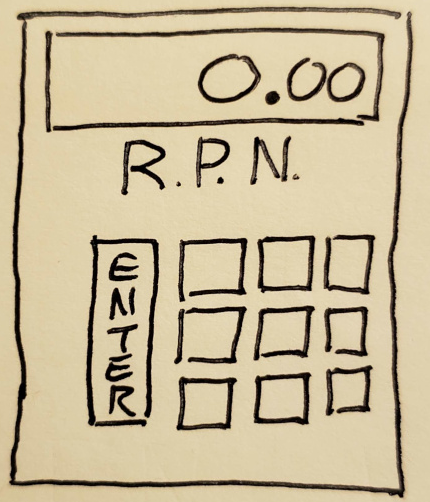 0.00
R.P.N.
ENTER